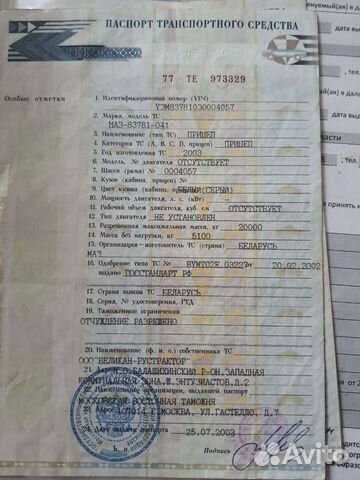 ПАСПОРТ ТРАНСПОРТНОГО СРЕДСТВА
77 ТЕ 973329
Особые отметки
1. Идентификационный номер (VIN)
Y3M83781030004057
2. Марка, модель ТС
МАЗ-83781-041
3. Наименование (тип ТС) ПРИЦЕП
4. Категория ТС (A, B, C, D, прицеп) ПРИЦЕП
5. Год изготовления ТС 2003
6. Модель, № двигателя ОТСУТСТВУЕТ
7. Шасси (рама) № 0004057
8. Кузов (кабина, прицеп) №
9. Цвет кузова (кабины, БЕЛЫЙ(СЕРЫЙ)
10. Мощность двигателя, л. с. (кВт)
11. Рабочий объем двигателя, куб. см ОТСУТСТВУЕТ
12. Тип двигателя НЕ УСТАНОВЛЕН
13. Разрешенная максимальная масса, кг 20000
14. Масса без нагрузки, кг 5100
15. Организация-изготовитель ТС (страна) БЕЛАРУСЬ
МАЗ
16. Одобрение типа ТС № BYMT02E.03227 от 20.02.2002
выдано ГОССТАНДАРТ РФ
17. Страна вывоза ТС БЕЛАРУСЬ
18. Серия, № удостоверения, ГТД
19. Таможенные ограничения
ОТЧУЖДЕНИЕ РАЗРЕШЕНО
20. Наименование (ф. и. о.) собственника ТС
ООО"ВЕЛИКАН-РУСТРАКТОР"
21. Адрес БАЛАШИХИНСКИЙ Р-ОН,ЗАПАДНАЯ
КОММУНАЛЬНАЯ ЗОНА,Ш.ЭНТУЗИАСТОВ,Д.2
22. Наименование организации, выдавшей паспорт
МОСКОВСКАЯ ВОСТОЧНАЯ ТАМОЖНЯ
23. Адрес 107014 Г.МОСКВА, УЛ.ГАСТЕЛЛО, Д.7
24. Дата выдачи паспорта 25.07.2003
М. п. Подпись
Avito